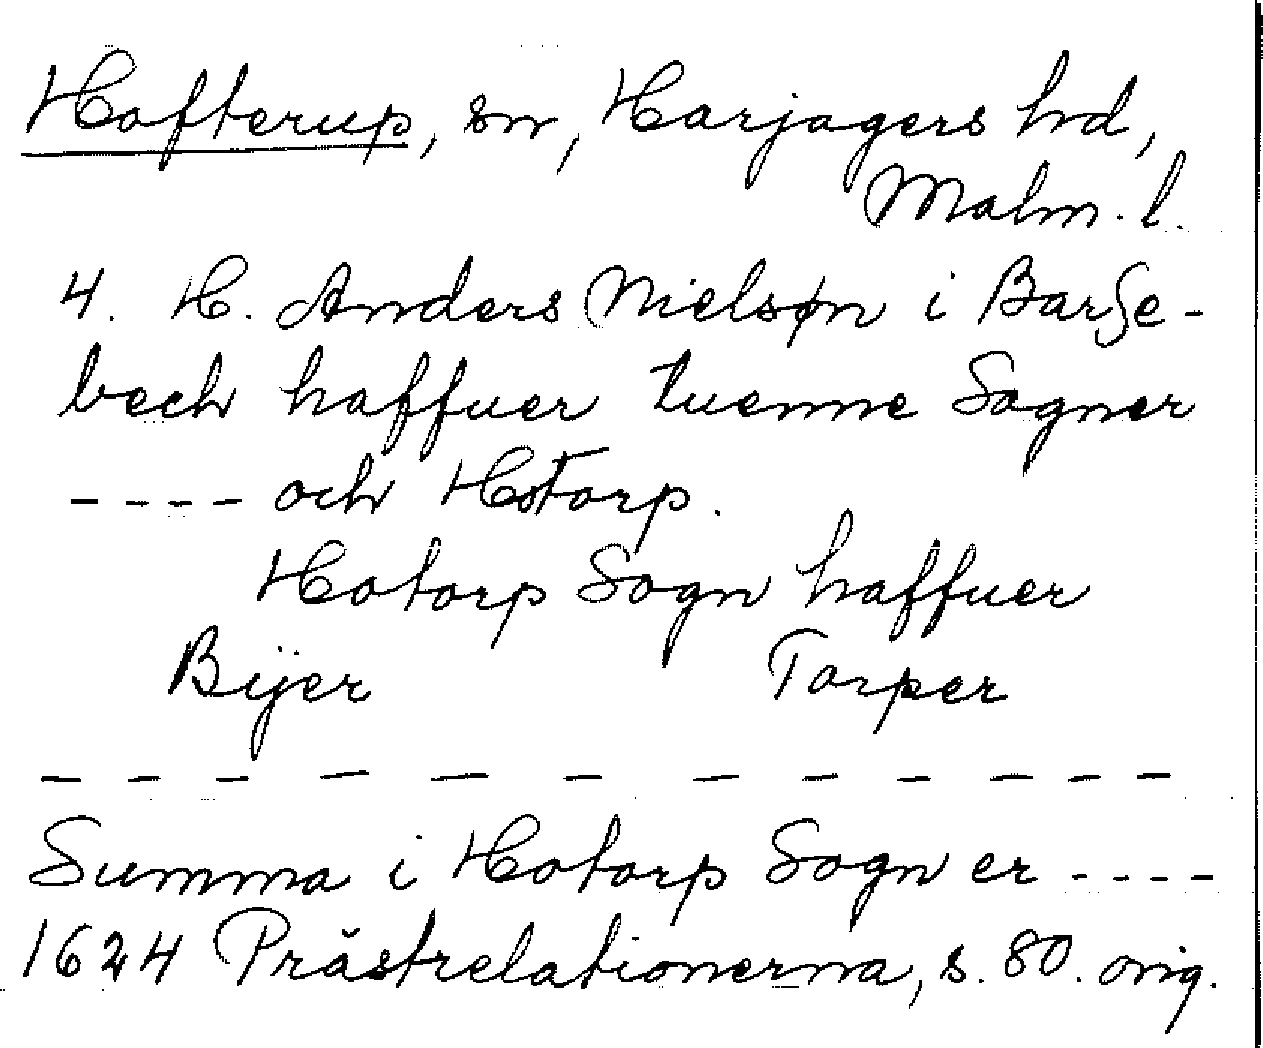 Hofterup, sn, Harjagers hd,
Malm. l.
4. H. Anders Nielsøn i Barse-
bech haffuer tuenne Sogner
---- och Hotorp.
Hotorp Sogn haffuer
Bijer Torper
— — — — — — — — — — — —
Summa i Hotorp Sogn er ----
1624 Prästrelationerna, s. 80. orig.